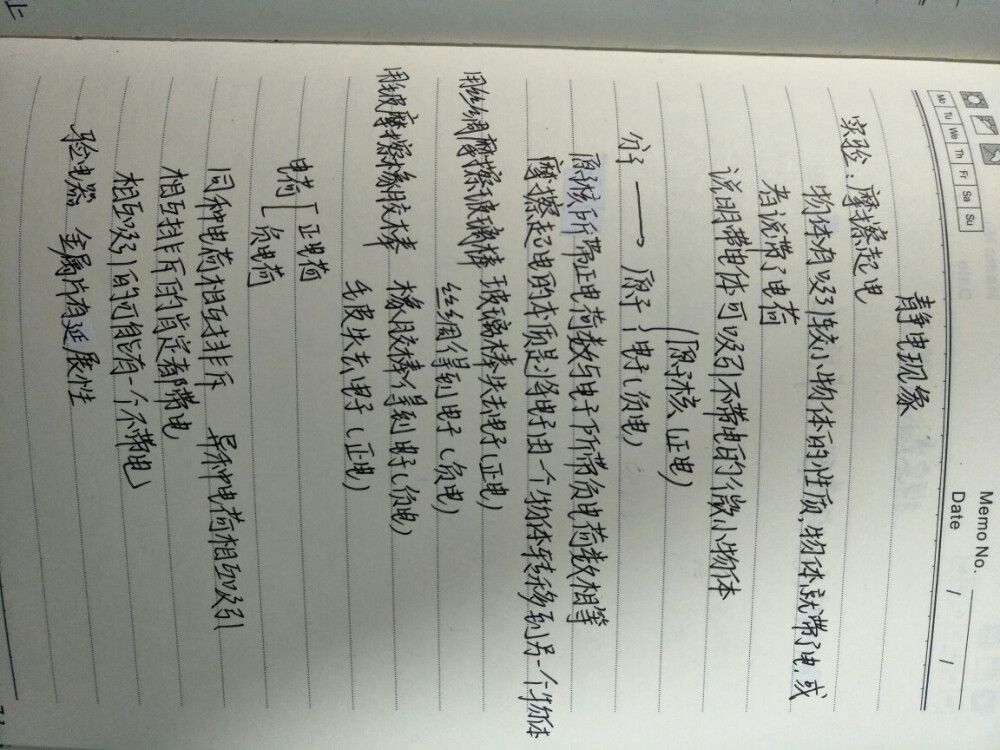 Memo No.
Date / /
Mo Tu We Th Fr Sa Su
静电现象
实验:摩擦起电
物体有吸引较小物体的性质,物体就带了电,或
者说带了电荷
说明带电体可以吸引不带电的微小物体
原子核(正电)
分子 → 原子 电子(负电)
原子核所带正电荷数与电子所带负电荷数相等
摩擦起电的本质是将电子由一个物体转移到另一个物体
用丝绸摩擦玻璃棒 玻璃棒失去电子(正电)
丝绸得到电子(负电)
用毛皮摩擦橡胶棒 橡胶棒得到电子(负电)
毛皮失去电子(正电)
电荷 正电荷
负电荷
同种电荷相互排斥 异种电荷相互吸引
相互排斥的肯定都带电
相互吸引的可能有一个不带电
验电器 金属片有延展性